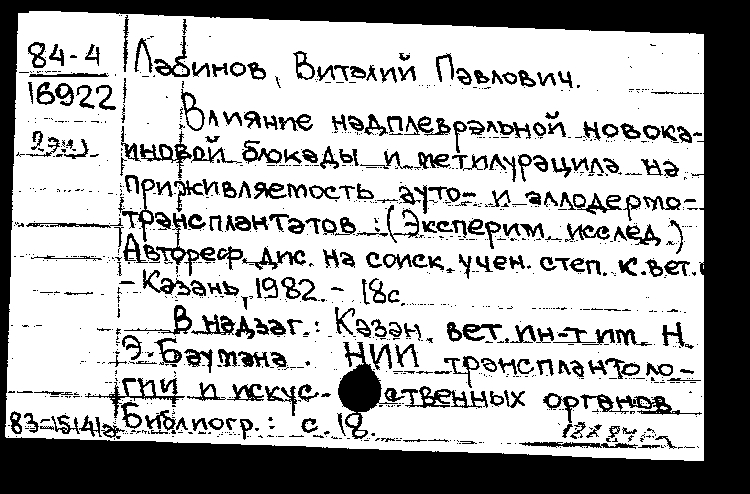 84-4
16922
2 экз
Лабинов, Виталий Павлович.
Влияние надплевральной новока-
иновой блокады и метилурацила на
приживляемость ауто- и аллодермо-
трансплантатов : (Эксперим. исслед.)
Автореф. дис. на соиск. учен. степ. к.вет.
- Казань, 1982. - 18с.
В надзаг.: Казан. вет. ин-т им. Н.
Э. Баумана. НИИ трансплантоло-
гии и искус- ственных органов.
Библиогр.: с. 18.